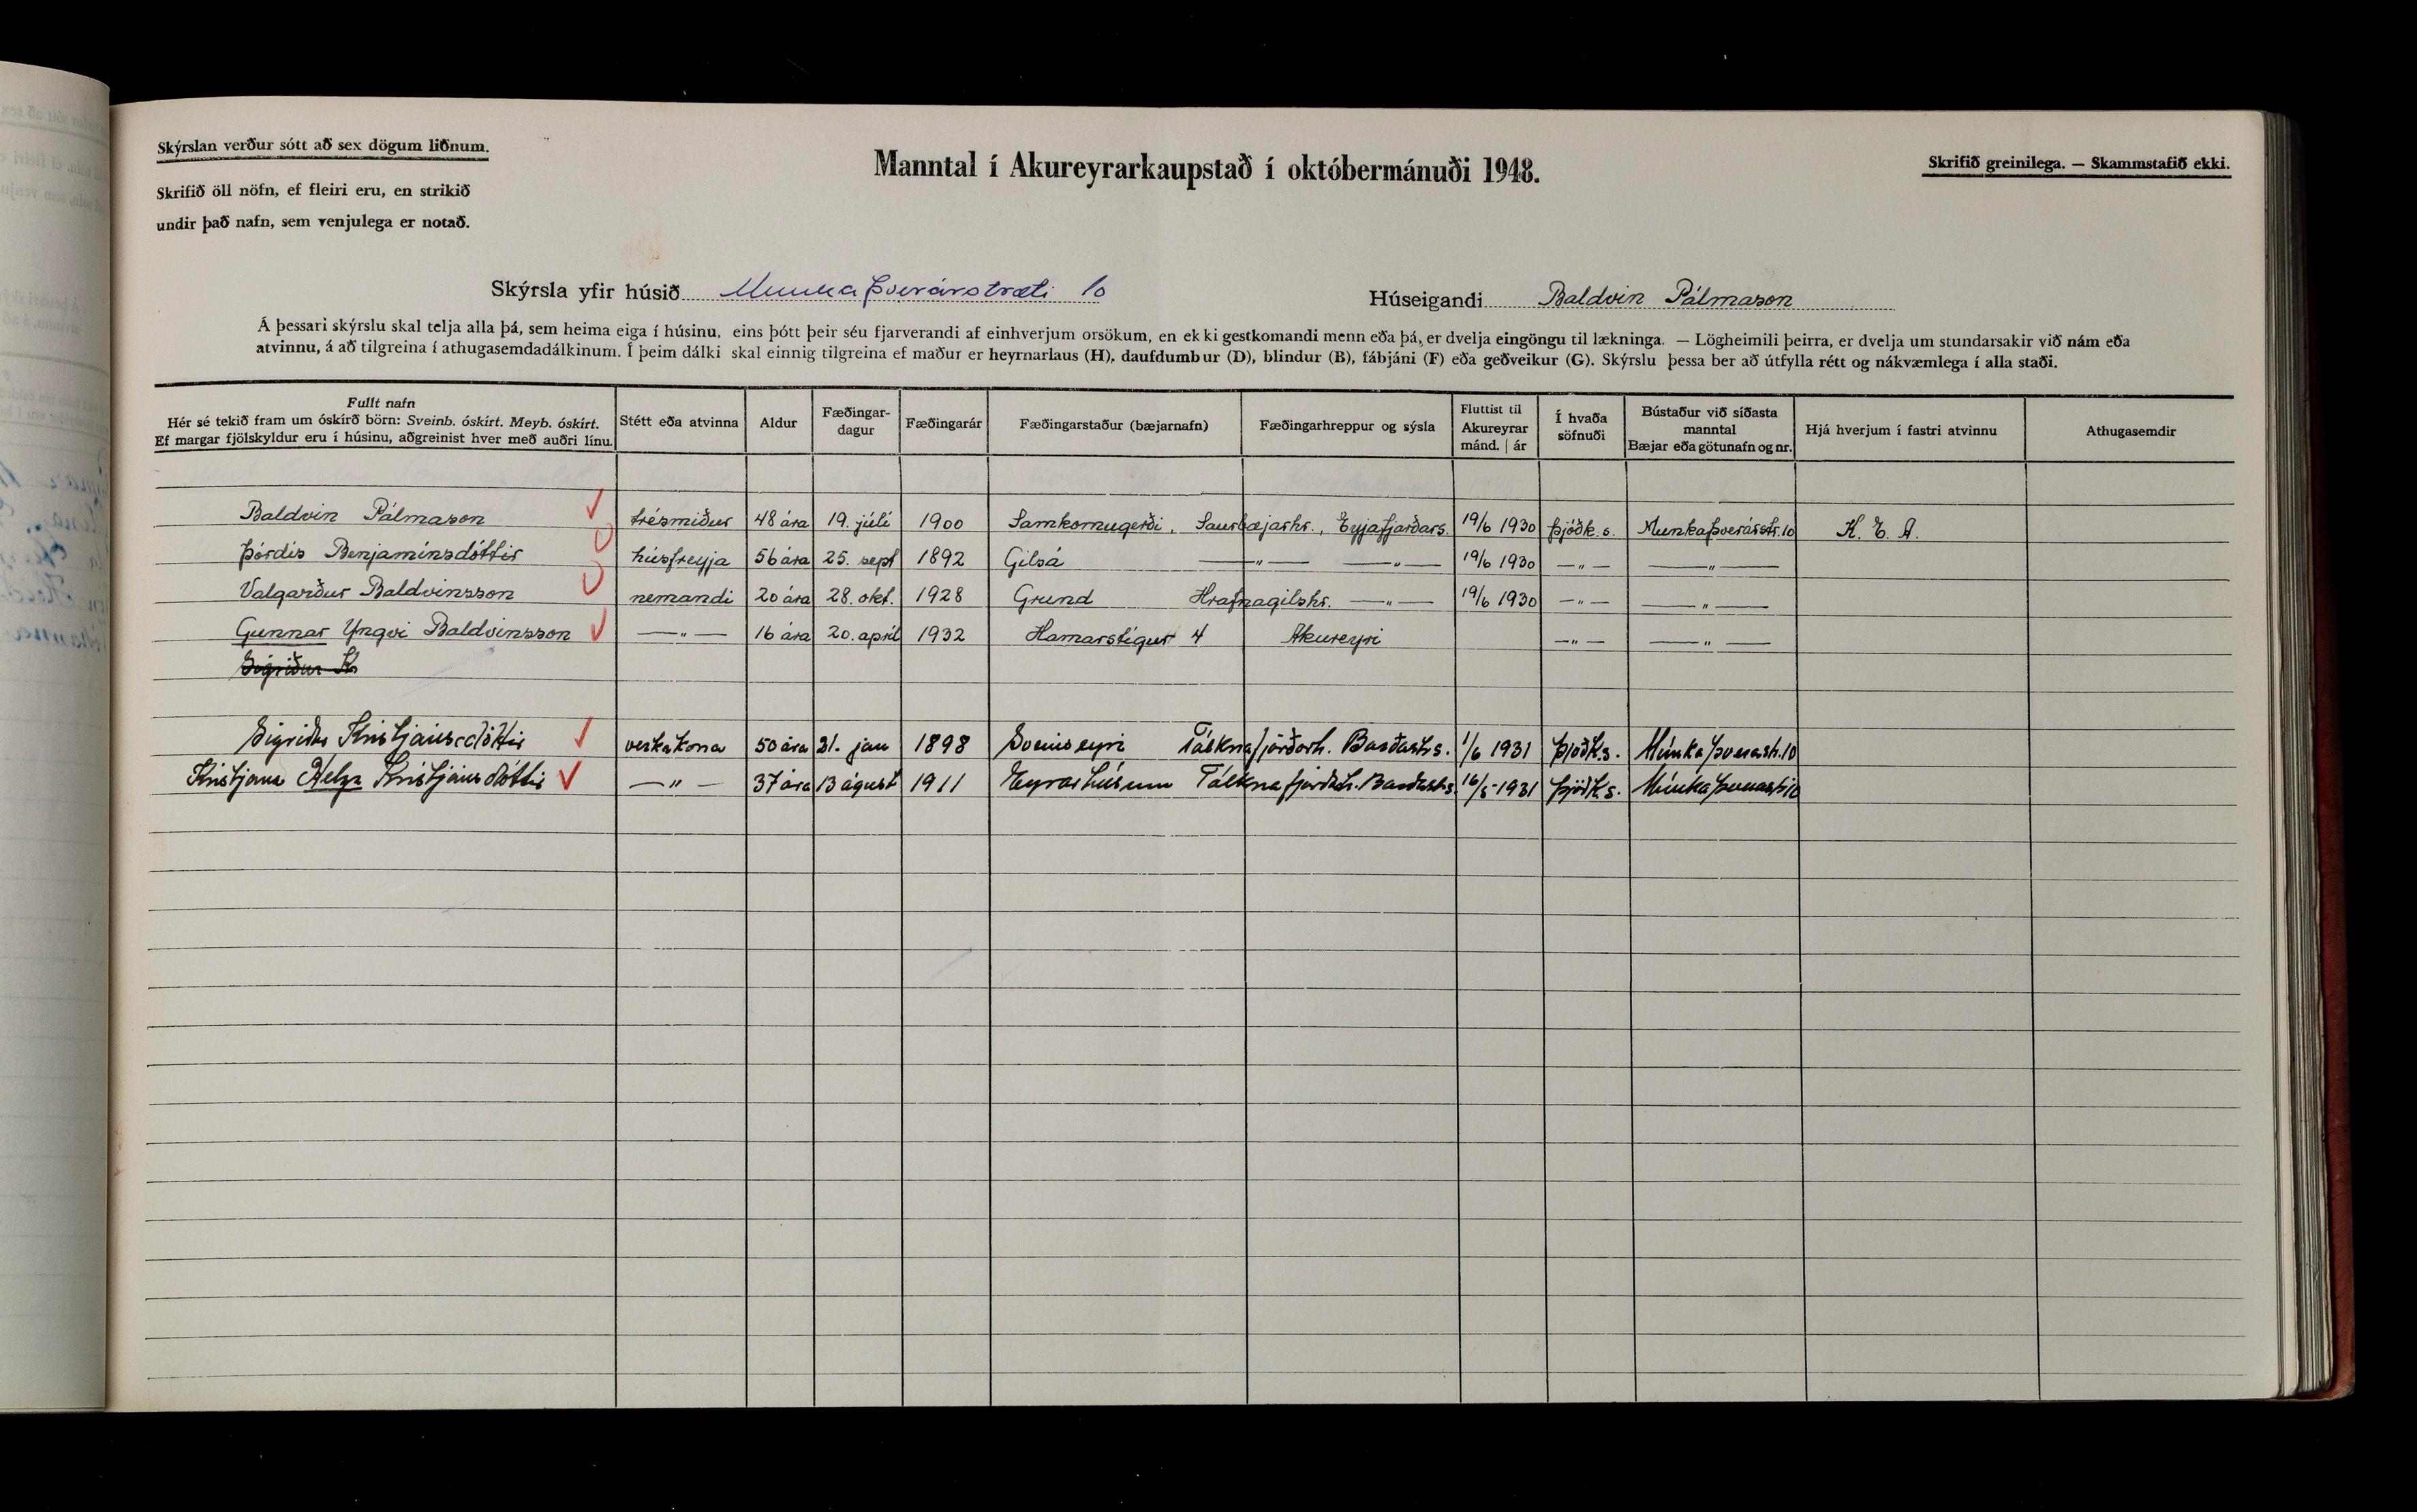 Skýrslan verður sótt að sex dögum liðnum.
Skrifið öll nöfn, ef fleiri eru, en strikið
undir það nafn, sem venjulega er notað.
Manntal í Akureyrarkaupstað í októbermánuði 1948.
Skrifið greinilega. — Skammstafið ekki.
Skýrsla yfir húsið Munkaþverárstræti 10
Húseigandi Baldvin Pálmason
Á þessari skýrslu skal telja alla þá, sem heima eiga í húsinu, eins þótt þeir séu fjarverandi af einhverjum orsökum, en ekki gestkomandi menn eða þá, er dvelja eingöngu til lækninga. — Lögheimili þeirra, er dvelja um stundarsakir við nám eða
atvinnu, á að tilgreina í athugasemdadálkinum. Í þeim dálki skal einnig tilgreina ef maður er heyrnarlaus (H), daufdumbur (D), blindur (B), fábjáni (F) eða geðveikur (G). Skýrslu þessa ber að útfylla rétt og nákvæmlega í alla staði.
Fullt nafn
Hér sé tekið fram um óskírð börn: Sveinb. óskírt. Meyb. óskírt.
Ef margar fjölskyldur eru í húsinu, aðgreinist hver með auðri línu.
Stétt eða atvinna
Aldur
Fæðingar-
dagur
Fæðingarár
Fæðingarstaður (bæjarnafn)
Fæðingarhreppur og sýsla
Fluttist til
Akureyrar
mánd. | ár
Í hvaða
söfnuði
Bústaður við síðasta
manntal
Bæjar eða götunafn og nr.
Hjá hverjum í fastri atvinnu
Athugasemdir
Baldvin Pálmason trésmiður 48 ára 19. júlí 1900 Samkomugerði, Saurbæjarhr., Eyjafjarðars. 19/6 1930 Þjóðk.s. Munkaþverárstr. 10 K. E. A.
Þórdís Benjamínsdóttir húsfreyja 56 ára 25. sept 1892 Gilsá —〃— —〃— 19/6 1930 —〃— —〃—
Valgarður Baldvinsson nemandi 20 ára 28. okt. 1928 Grund Hrafnagilshr. —〃— 19/6 1930 —〃— —〃—
Gunnar Yngvi Baldvinsson —〃— 16 ára 20. apríl 1932 Hamarstígur 4 Akureyri —〃— —〃—
Sigríður K
Sigríður Kristjánsdóttir verkakona 50 ára 31. jan 1898 Sveinseyri Tálknafjörðorh. Barðasts. 1/6 1931 Þjóðk.s. Múnkaþverastr. 10
Kristjana Helga Kristjánsdóttir —〃— 37 ára 13 ágúst 1911 Eyrarhúsum Tálknafjörðsh. Barðasts. 16/5-1931 Þjóðk.s. Múnkaþverastr 10